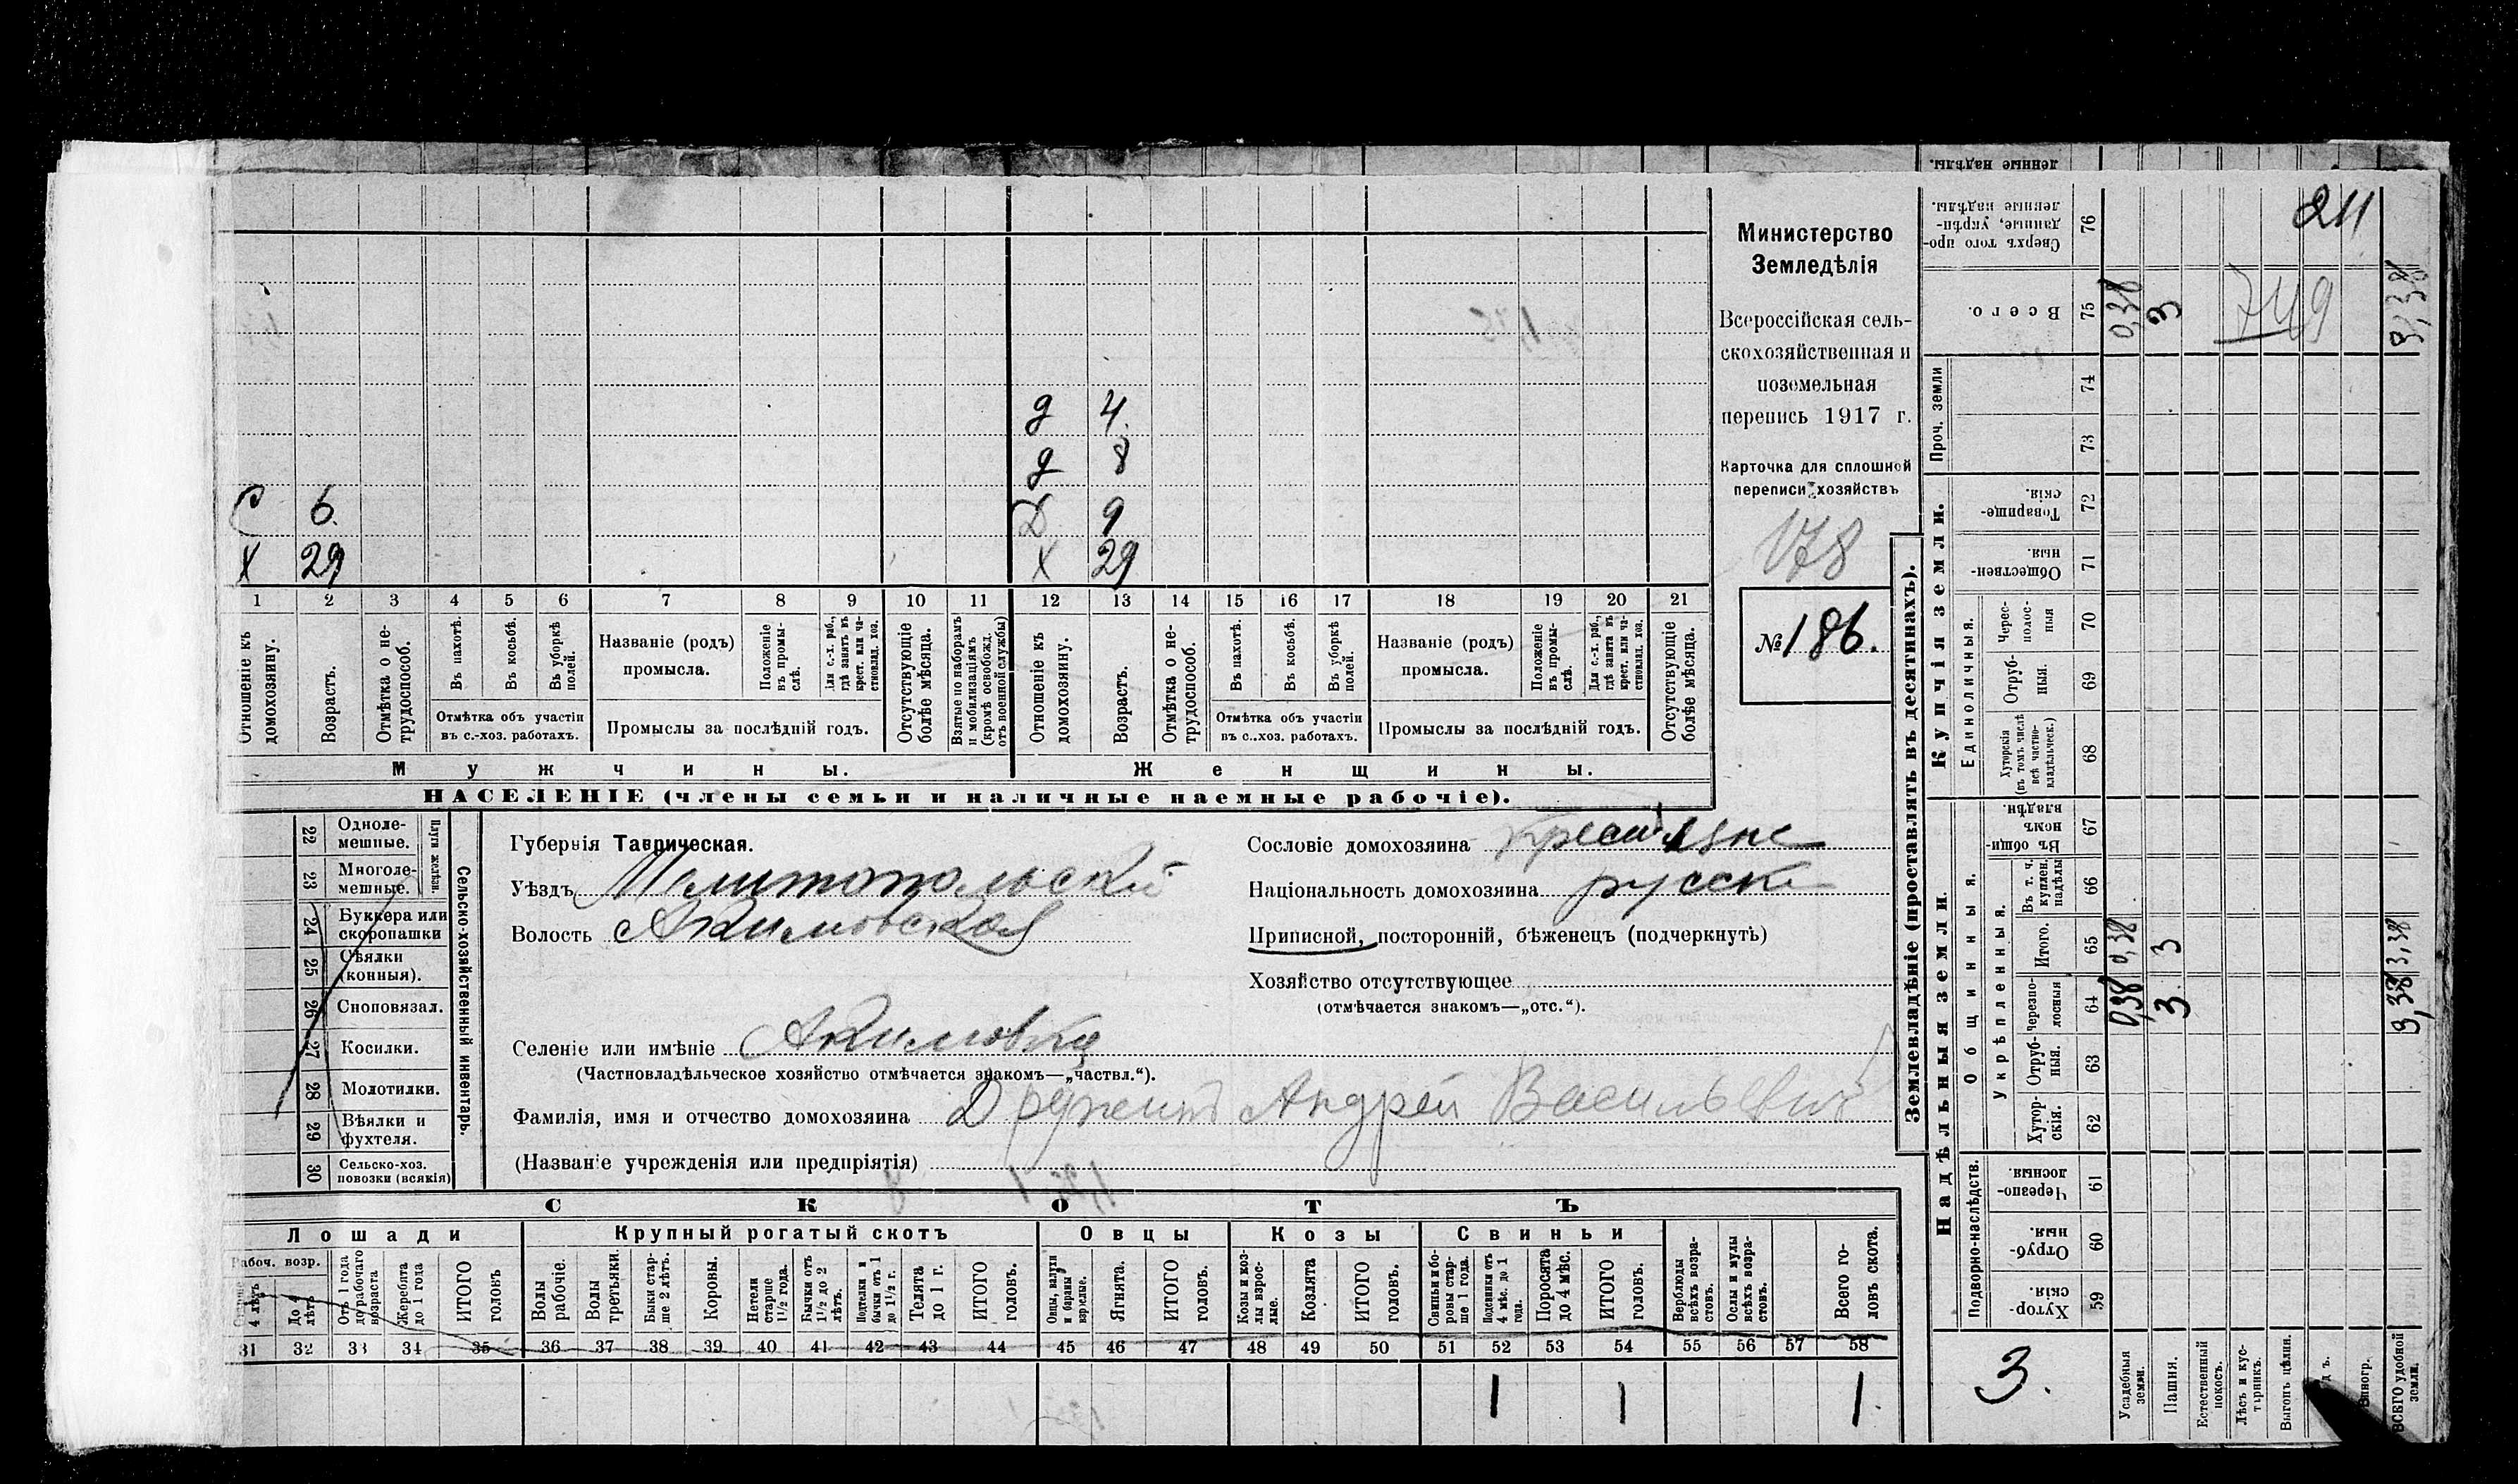 211
749
Министерство
Земледѣлія
Всероссійская сель-
скохозяйственная и
поземельная
перепись 1917 г.
Карточка для сплошной
переписи хозяйствъ
178
№ 186.
д 4.
д 8
С 6. Д 9
Х 29 Х 29
1 2 3 4 5 6 7 8 9 10 11 12 13 14 15 16 17 18 19 20 21
Отношеніе къ домохозяину.
Возрастъ.
Отмѣтка о не-трудоспособ.
Въ пахотѣ.
Въ косьбѣ.
Въ уборкѣ полей.
Отмѣтка объ участіи
въ с.-хоз. работахъ.
Названіе (родъ)
промысла.
Положеніе въ промы-слѣ.
Для с.-х. раб., гдѣ занятъ въ крест. или ча-стновлад. хоз.
Промыслы за послѣдній годъ.
Отсутствующіе болѣе мѣсяца.
Взятые по наборамъ и мобилизаціямъ (кромѣ освобожд. отъ военной службы)
Отношеніе къ домохозяину.
Возрастъ.
Отмѣтка о не-трудоспособ.
Въ пахотѣ.
Въ косьбѣ.
Въ уборкѣ полей.
Отмѣтка объ участіи
въ с..хоз. работахъ.
Названіе (родъ)
промысла.
Положеніе въ промы-слѣ.
Для с.-х. раб., гдѣ занята въ крест. или ча-стновлад. хоз.
Промыслы за послѣдній годъ.
Отсутствующіе болѣе мѣсяца.
Мужчины. Женщины.
НАСЕЛЕНІЕ (члены семьи и наличные наемные рабочіе).
Сельско-хозяйственный инвентарь.
Плуги желѣзн.
22 Одноле-мешные.
23 Многоле-мешные.
24 Буккера или скоропашки
25 Сѣялки (конныя).
26 Сноповязал.
27 Косилки.
28 Молотилки.
29 Вѣялки и фухтеля.
30 Сельско-хоз. повозки (всякія)
Губернія Таврическая.
Уѣздъ Мелитопольскій
Волость Акимовская
Селеніе или имѣніе Акимовка
(Частновладѣльческое хозяйство отмѣчается знакомъ—„частвл.“).
Фамилія, имя и отчество домохозяина Андрей Васильевичъ
(Названіе учрежденія или предпріятія)
Сословіе домохозяина
Національность домохозяина русск
Приписной, посторонній, бѣженецъ (подчеркнуть)
Хозяйство отсутствующее
(отмѣчается знакомъ—„отс.“).
СКОТЪ
Лошади Крупный рогатый скотъ Овцы Козы Свиньи
Рабоч. возр.
4 лѣтъ
До 4 лѣтъ
Отъ 1 года до рабочаго возраста
Жеребята до 1 года
ИТОГО головъ
Волы рабочіе.
Волы третьяки.
Быки стар-ше 2 лѣтъ.
Коровы.
Нетели старше 1½ года.
Бычки отъ 1½ до 2 лѣтъ.
Подтелки и бычки отъ 1 до 1½ г.
Телята до 1 г.
ИТОГО головъ.
Овцы, валухи и бараны взрослые.
Ягнята.
ИТОГО головъ.
Козы и коз-лы взрос-лые.
Козлята
ИТОГО головъ.
Свиньи и бо-ровы стар-ше 1 года.
Подсвинки отъ 4 мѣс. до 1 года.
Поросята до 4 мѣс.
ИТОГО головъ.
Верблюды всѣхъ возра-стовъ.
Ослы и мулы всѣхъ возра-стовъ.
Всего го-ловъ скота.
31 32 33 34 35 36 37 38 39 40 41 42 43 44 45 46 47 48 49 50 51 52 53 54 55 56 57 58
1 1 1
Землевладѣніе (проставлять въ десятинахъ).
Надѣльныя земли. Купчія земли.
Проч. земли
Подворно-наслѣдств.
Общинныя.
Укрѣпленныя.
Единоличныя.
денные надѣлы.
76 Сверхъ того про-данные, укрѣп-ленные надѣлы.
75 Всего. 0,38 3 3,38
74
73
72 Товарище-скія.
71 Обществен-ныя.
70 Черес-полос-ныя
69 Отруб-ныя.
68 Хуторскія (въ томъ числѣ всѣ частно-владѣльческ.)
67 Въ общин-номъ владѣн.
66 Въ т. ч. куплен. надѣлы
65 Итого. 0,38 3 3,38
64 Черезпо-лосныя 0,38 3 3,38
63 Отруб-ныя.
62 Хутор-скія.
61 Черезпо-лосныя.
60 Отруб-ныя.
59 Хутор-скія
3.
Усадебныя земли.
Пашня.
Естественный покосъ.
Лѣсъ и кус-тарникъ.
Выгонъ цѣлин.
Виногр.
ВСЕГО удобной земли.